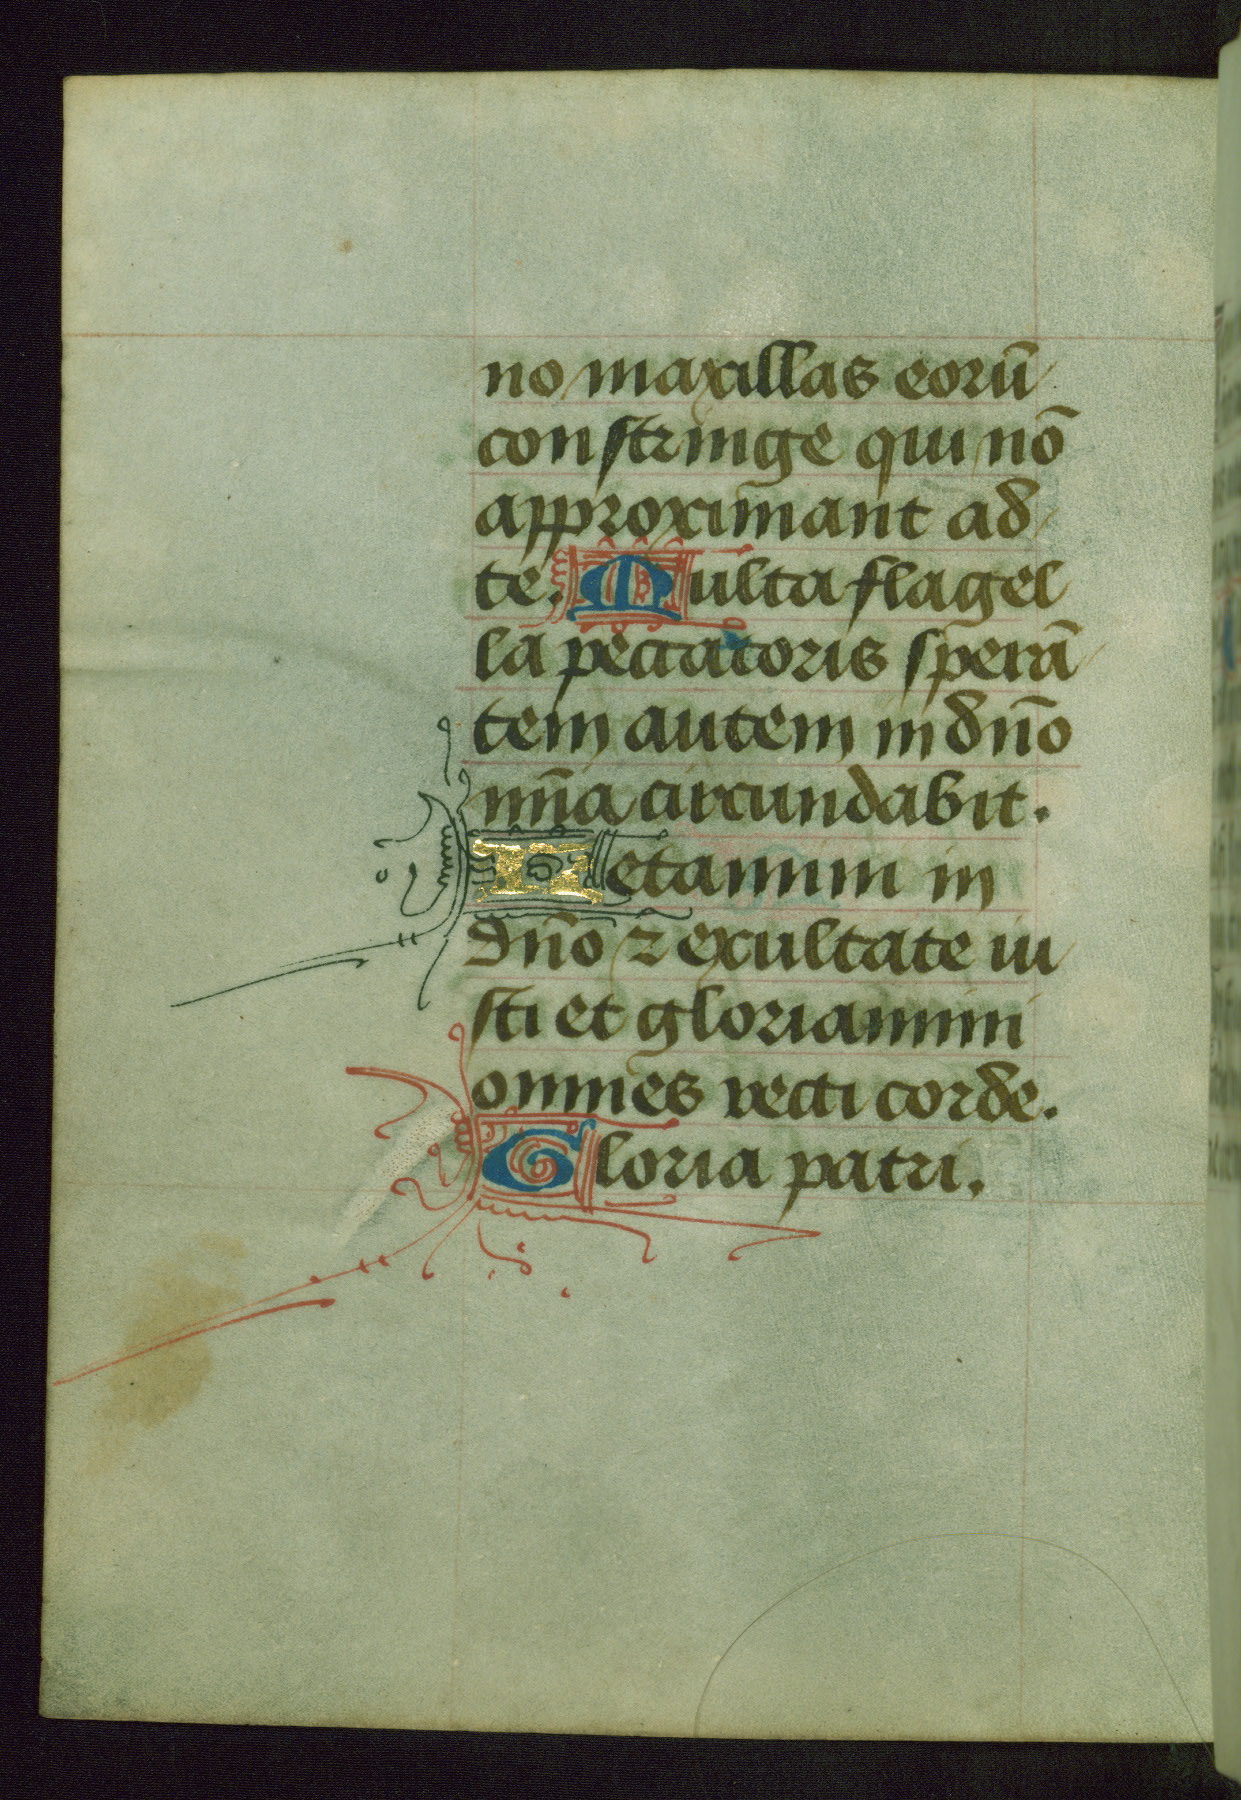 no maxillas eorū
constringe qui nō
approximant ad
te. Multa flagel
la peccatoris sperā
tem autem in dn̄o
mīa circundabit.
Letamini in
dn̄o ⁊ exultate iu
sti et gloriamini
omnes recti corde.
Gloria patri.